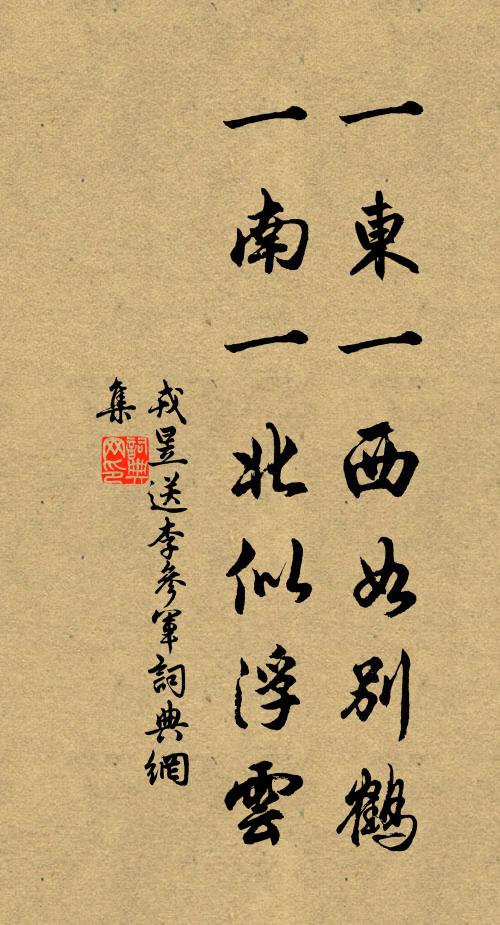 一東一西如別鶴
一南一北似浮雲
戎昱送李參軍詞典網
集
詞典
网印